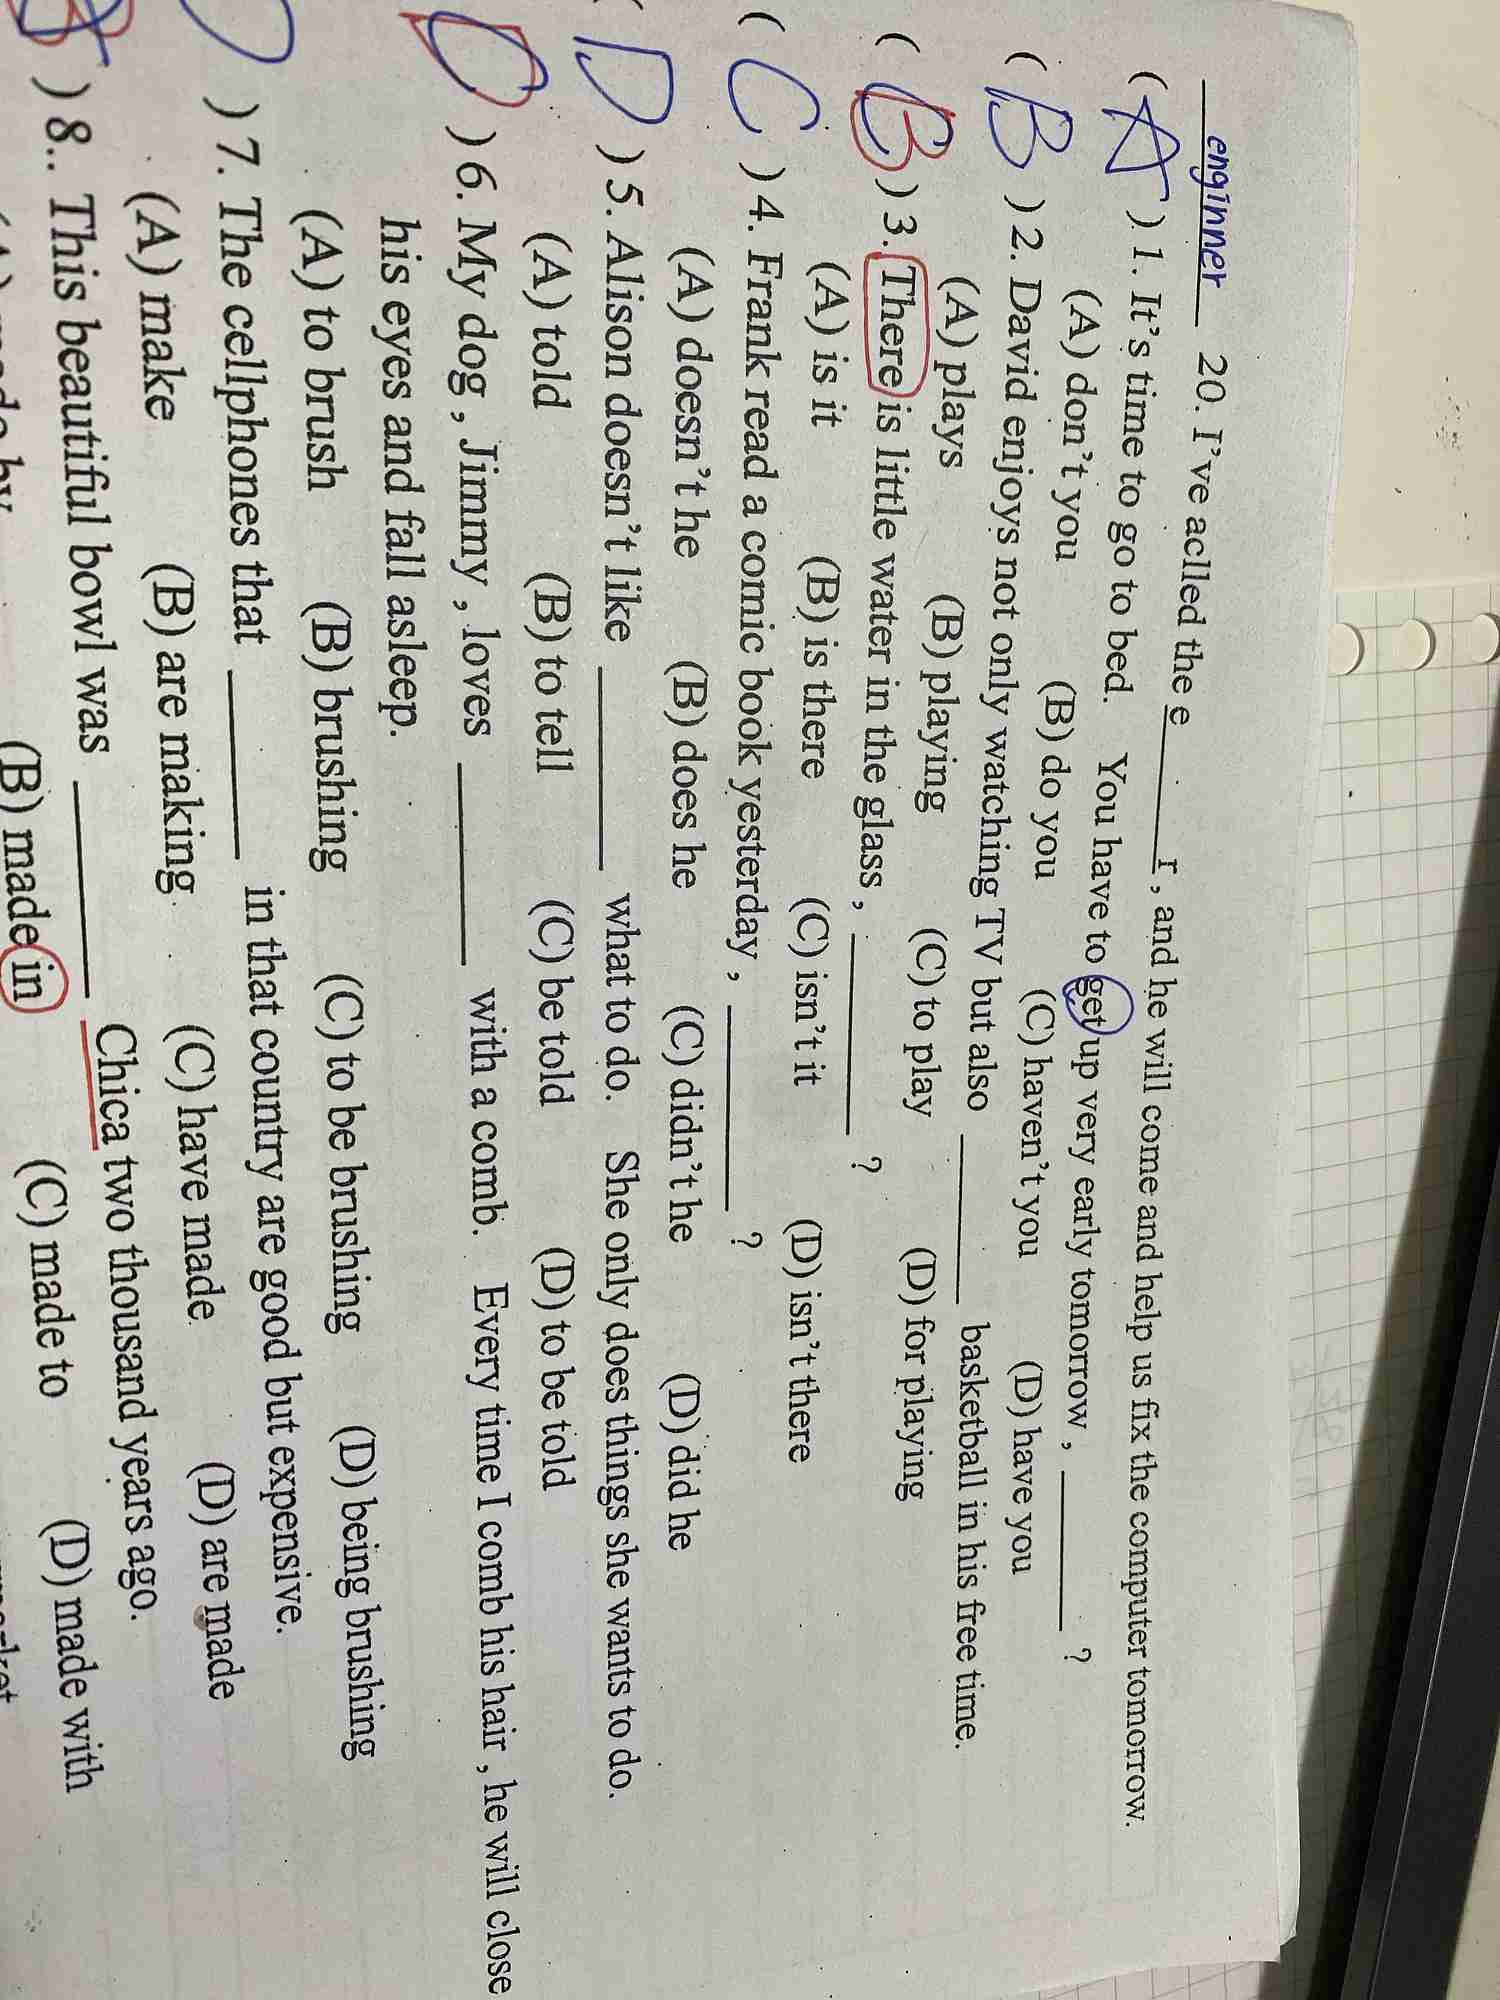 enginner 20. I've aclled the e r , and he will come and help us fix the computer tomorrow.
( A ) 1. It's time to go to bed. You have to get up very early tomorrow , ?
(A) don't you (B) do you (C) haven't you (D) have you
( B ) 2. David enjoys not only watching TV but also basketball in his free time.
(A) plays (B) playing (C) to play (D) for playing
( B ) 3. There is little water in the glass , ?
(A) is it (B) is there (C) isn't it (D) isn't there
( C ) 4. Frank read a comic book yesterday , ?
(A) doesn't he (B) does he (C) didn't he (D) did he
( D ) 5. Alison doesn't like what to do. She only does things she wants to do.
(A) told (B) to tell (C) be told (D) to be told
) 6. My dog , Jimmy , loves with a comb. Every time I comb his hair , he will close
his eyes and fall asleep.
(A) to brush (B) brushing (C) to be brushing (D) being brushing
) 7. The cellphones that in that country are good but expensive.
(A) make (B) are making (C) have made (D) are made
) 8.. This beautiful bowl was Chica two thousand years ago.
(B) made in (C) made to (D) made with